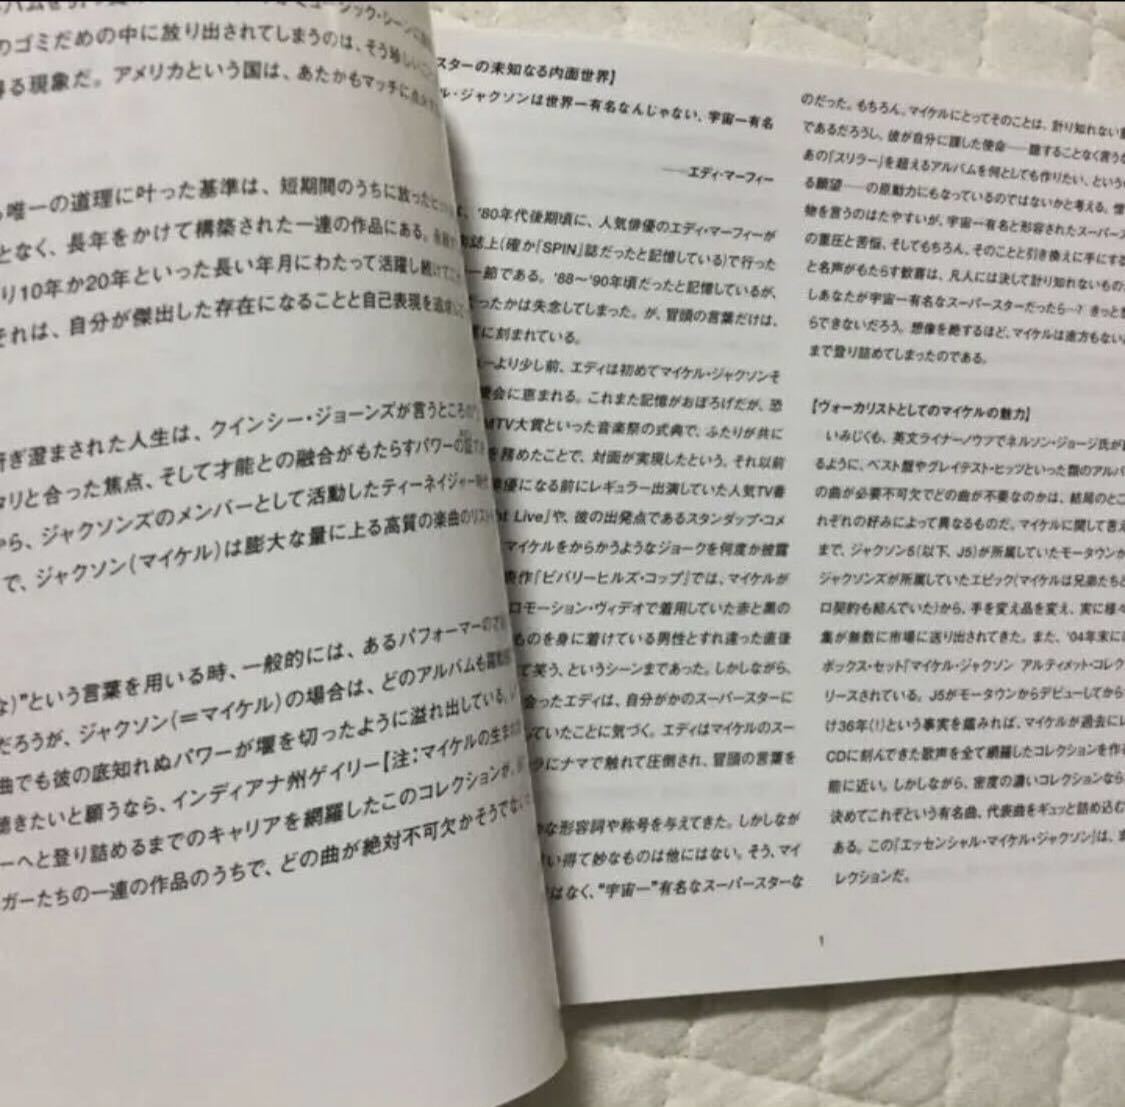 のゴミだめの中に放り出されてしまうのは、そう珍しい
る現象だ。アメリカという国は、あたかもマッチに
唯一の道理に叶った基準は、短期間のうちに放った
となく、長年をかけて構築された一連の作品にある。
り10年か20年といった長い年月にわたって活躍し続けて
それは、自分が傑出した存在になることと自己表現を追
ぎ澄まされた人生は、クインシー・ジョーンズが言うところの
タリと合った焦点、そして才能との融合がもたらすパワーの
から、ジャクソンズのメンバーとして活動したティーネイジャー時
で、ジャクソン(マイケル)は膨大な量に上る高質の楽曲のリスト
な)”という言葉を用いる時、一般的には、あるパフォーマーの
だろうが、ジャクソン(=マイケル)の場合は、どのアルバムも
曲でも彼の底知れぬパワーが堰を切ったように溢れ出している。
聴きたいと願うなら、インディアナ州ゲイリー【注:マイケルの生ま
ーへと登り詰めるまでのキャリアを網羅したこのコレクションが、
ガーたちの一連の作品のうちで、どの曲が絶対不可欠かそうでない
スターの未知なる内面世界】
ル・ジャクソンは世界一有名なんじゃない、宇宙一有名
——エディ・マーフィー
、'80年代後期頃に、人気俳優のエディ・マーフィーが
誌上(確か「SPIN」誌だったと記憶している)で行った
一節である。'88〜'90年頃だったと記憶しているが、
だったかは失念してしまった。が、冒頭の言葉だけは、
に刻まれている。
ーより少し前、エディは初めてマイケル・ジャクソンそ
会に恵まれる。これまた記憶がおぼろげだが、恐
MTV大賞といった音楽祭の式典で、ふたりが共に
を務めたことで、対面が実現したという。それ以前
優になる前にレギュラー出演していた人気TV番
t Live」や、彼の出発点であるスタンダップ・コメ
マイケルをからかうようなジョークを何度か披露
表作「ビバリーヒルズ・コップ」では、マイケルが
ロモーション・ヴィデオで着用していた赤と黒の
ものを身に着けている男性とすれ違った直後
て笑う、というシーンまであった。しかしながら、
会ったエディは、自分がかのスーパースターに
していたことに気づく。エディはマイケルのスー
ラにナマで触れて圧倒され、冒頭の言葉を
な形容詞や称号を与えてきた。しかしなが
い得て妙なものは他にはない。そう、マイ
はなく、“宇宙一”有名なスーパースターな
のだった。もちろん、マイケルにとってそのことは、計り知れない
であるだろうし、彼が自分に課した使命——臆することなく言うな
あの「スリラー」を超えるアルバムを何としても作りたい、という
る願望——の原動力にもなっているのではないかと考える。
物を言うのはたやすいが、宇宙一有名と形容されたスーパース
の重圧と苦悩、そしてもちろん、そのことと引き換えに手にする
と名声がもたらす歓喜は、凡人には決して計り知れないもの
しあなたが宇宙一有名なスーパースターだったら…? きっと
らできないだろう。想像を絶するほど、マイケルは途方もない
まで登り詰めてしまったのである。
【ヴォーカリストとしてのマイケルの魅力】
いみじくも、英文ライナーノウツでネルソン・ジョージ氏が
るように、ベスト盤やグレイテスト・ヒッツといった類のアルバ
の曲が必要不可欠でどの曲が不要なのかは、結局のとこ
れぞれの好みによって異なるものだ。マイケルに関して言え
まで、ジャクソン5(以下、J5)が所属していたモータウンか
ジャクソンズが所属していたエピック(マイケルは兄弟たちと
ロ契約も結んでいた)から、手を変え品を変え、実に様々
集が無数に市場に送り出されてきた。また、'04年末には
ボックス・セット「マイケル・ジャクソン アルティメット・コレク
リースされている。J5がモータウンからデビューしてから
け36年(!)という事実を鑑みれば、マイケルが過去にレ
CDに刻んできた歌声を全て網羅したコレクションを作る
能に近い。しかしながら、密度の濃いコレクションなら
決めてこれぞという有名曲、代表曲をギュッと詰め込む
ある。この「エッセンシャル・マイケル・ジャクソン」は、ま
レクションだ。
1